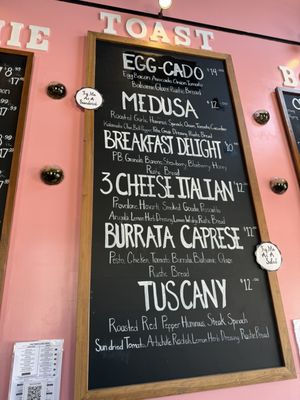 NIE
TOAST
B
Try Me
As A
Sandwich
EGG-CADO $14.00
Egg Bacon Avocado Onion Tomato
Balsamic Glaze Rustic Bread
MEDUSA $12.00
Roasted Garlic Hummus Spinach Onion Tomato Cucumber
Kalamata Olive Bell Pepper Feta Greek Dressing Rustic Bread
BREAKFAST DELIGHT $10.00
PB Granola Banana Strawberry Blueberry Honey
Rustic Bread
3 CHEESE ITALIAN $12.00
Provolone Havarti Smoked Gouda Prosciutto
Arugula Lemon Herb Dressing Rustic Bread
BURRATA CAPRESE $12.00
Pesto, Chicken, Tomato, Burrata, Balsamic Glaze
Rustic Bread
Try Me
As A
Salad
TUSCANY $12.00
Roasted Red Pepper Hummus, Steak, Spinach
Sundried Tomato, Artichoke Radish Lemon Herb Dressing, Rustic Bread